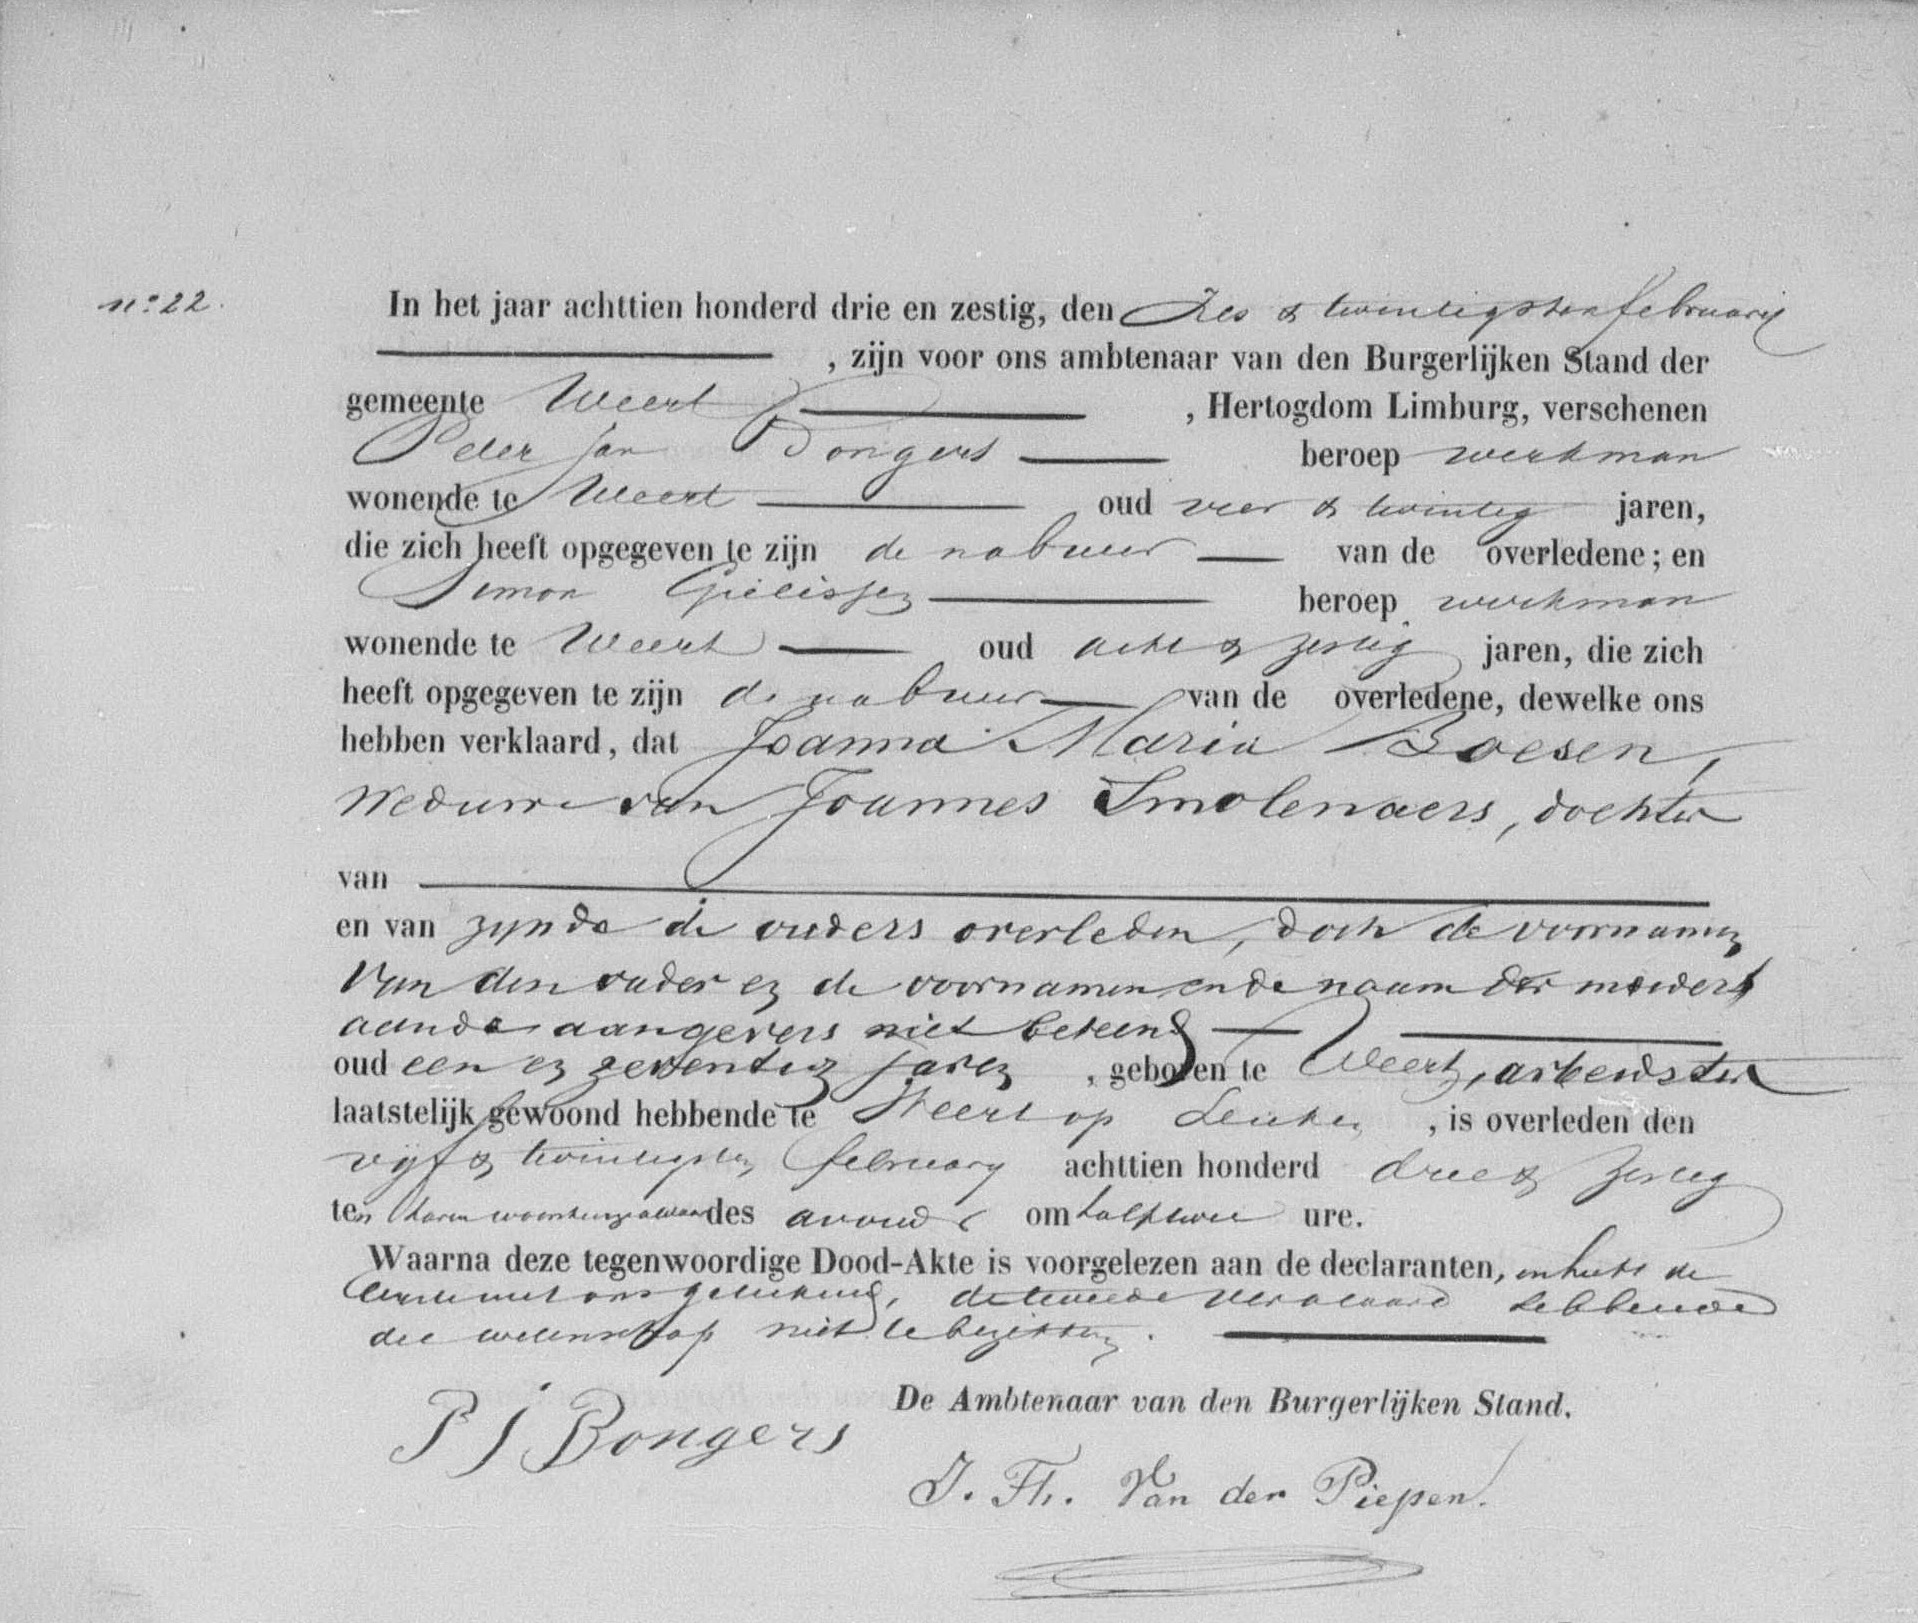 nº 22.
In het jaar achttien honderd drie en zestig, den Zes & twintigsten februarij
, zijn voor ons ambtenaar van den Burgerlijken Stand der
gemeente Weert , Hertogdom Limburg, verschenen
Peter Jan Bongers beroep werkman
wonende te Weert oud vier & twintig jaren,
die zich heeft opgegeven te zijn de nabuur van de overledene; en
Simon Gielissen beroep werkman
wonende te Weert oud acht & zestig jaren, die zich
heeft opgegeven te zijn de nabuur van de overledene, dewelke ons
hebben verklaard, dat Joanna Maria Boesen,
weduwe van Joannes Smolenaers, dochter
van
en van zynde de ouders overleden, doch de voornamen
Van den vader en de voornamen en de naam der moeder
aan de aangevers niet bekend
oud een en zeventig jaren , geboren te Weert, arbeidster
laatstelijk gewoond hebbende te Weert op Leuken , is overleden den
vijf & twintigsten february achttien honderd drie & zestig
ten haren woonhuize des avonds om half twee ure.
Waarna deze tegenwoordige Dood-Akte is voorgelezen aan de declaranten, en heeft de
eerste met ons geteekend, de tweede verklaard hebbende
die wetenschap niet te bezitten.
De Ambtenaar van den Burgerlijken Stand.
P J Bongers
J. Fh. Van der Piepen.